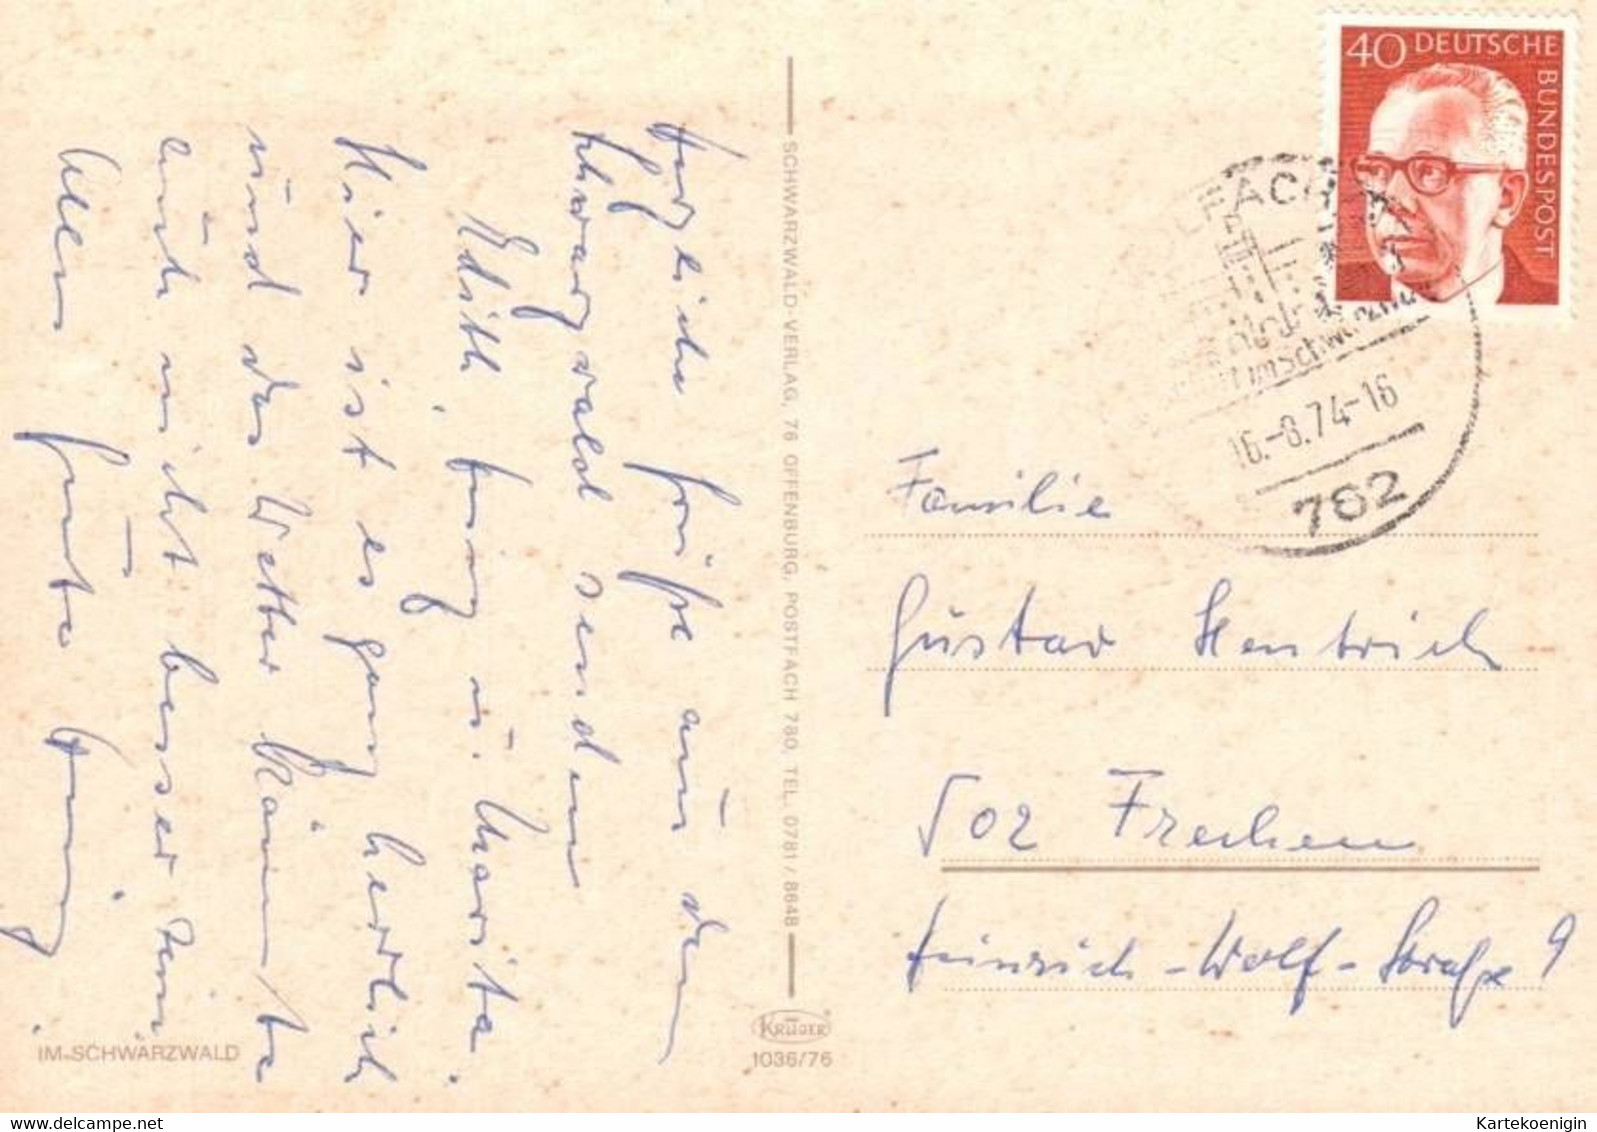 Herzliche Grüße aus dem
Schwarzwald senden
Edith, u. Marita.
Hier ist es ganz herrlich
und das Wetter könnte
auch nicht besser sein.
Alles Gute
IM SCHWARZWALD
SCHWARZWALD-VERLAG, 76 OFFENBURG, POSTFACH 780, TEL. 0781 / 8648
KRÜGER
1036/76
40 DEUTSCHE BUNDESPOST
WOLFACH
im Schwarzwald
16.-8.74-16
762
Familie
Gustav Hentrich
502 Frechen
Heinrich-Wolf-Straße 9
delcampe.net
Kartekoenigin